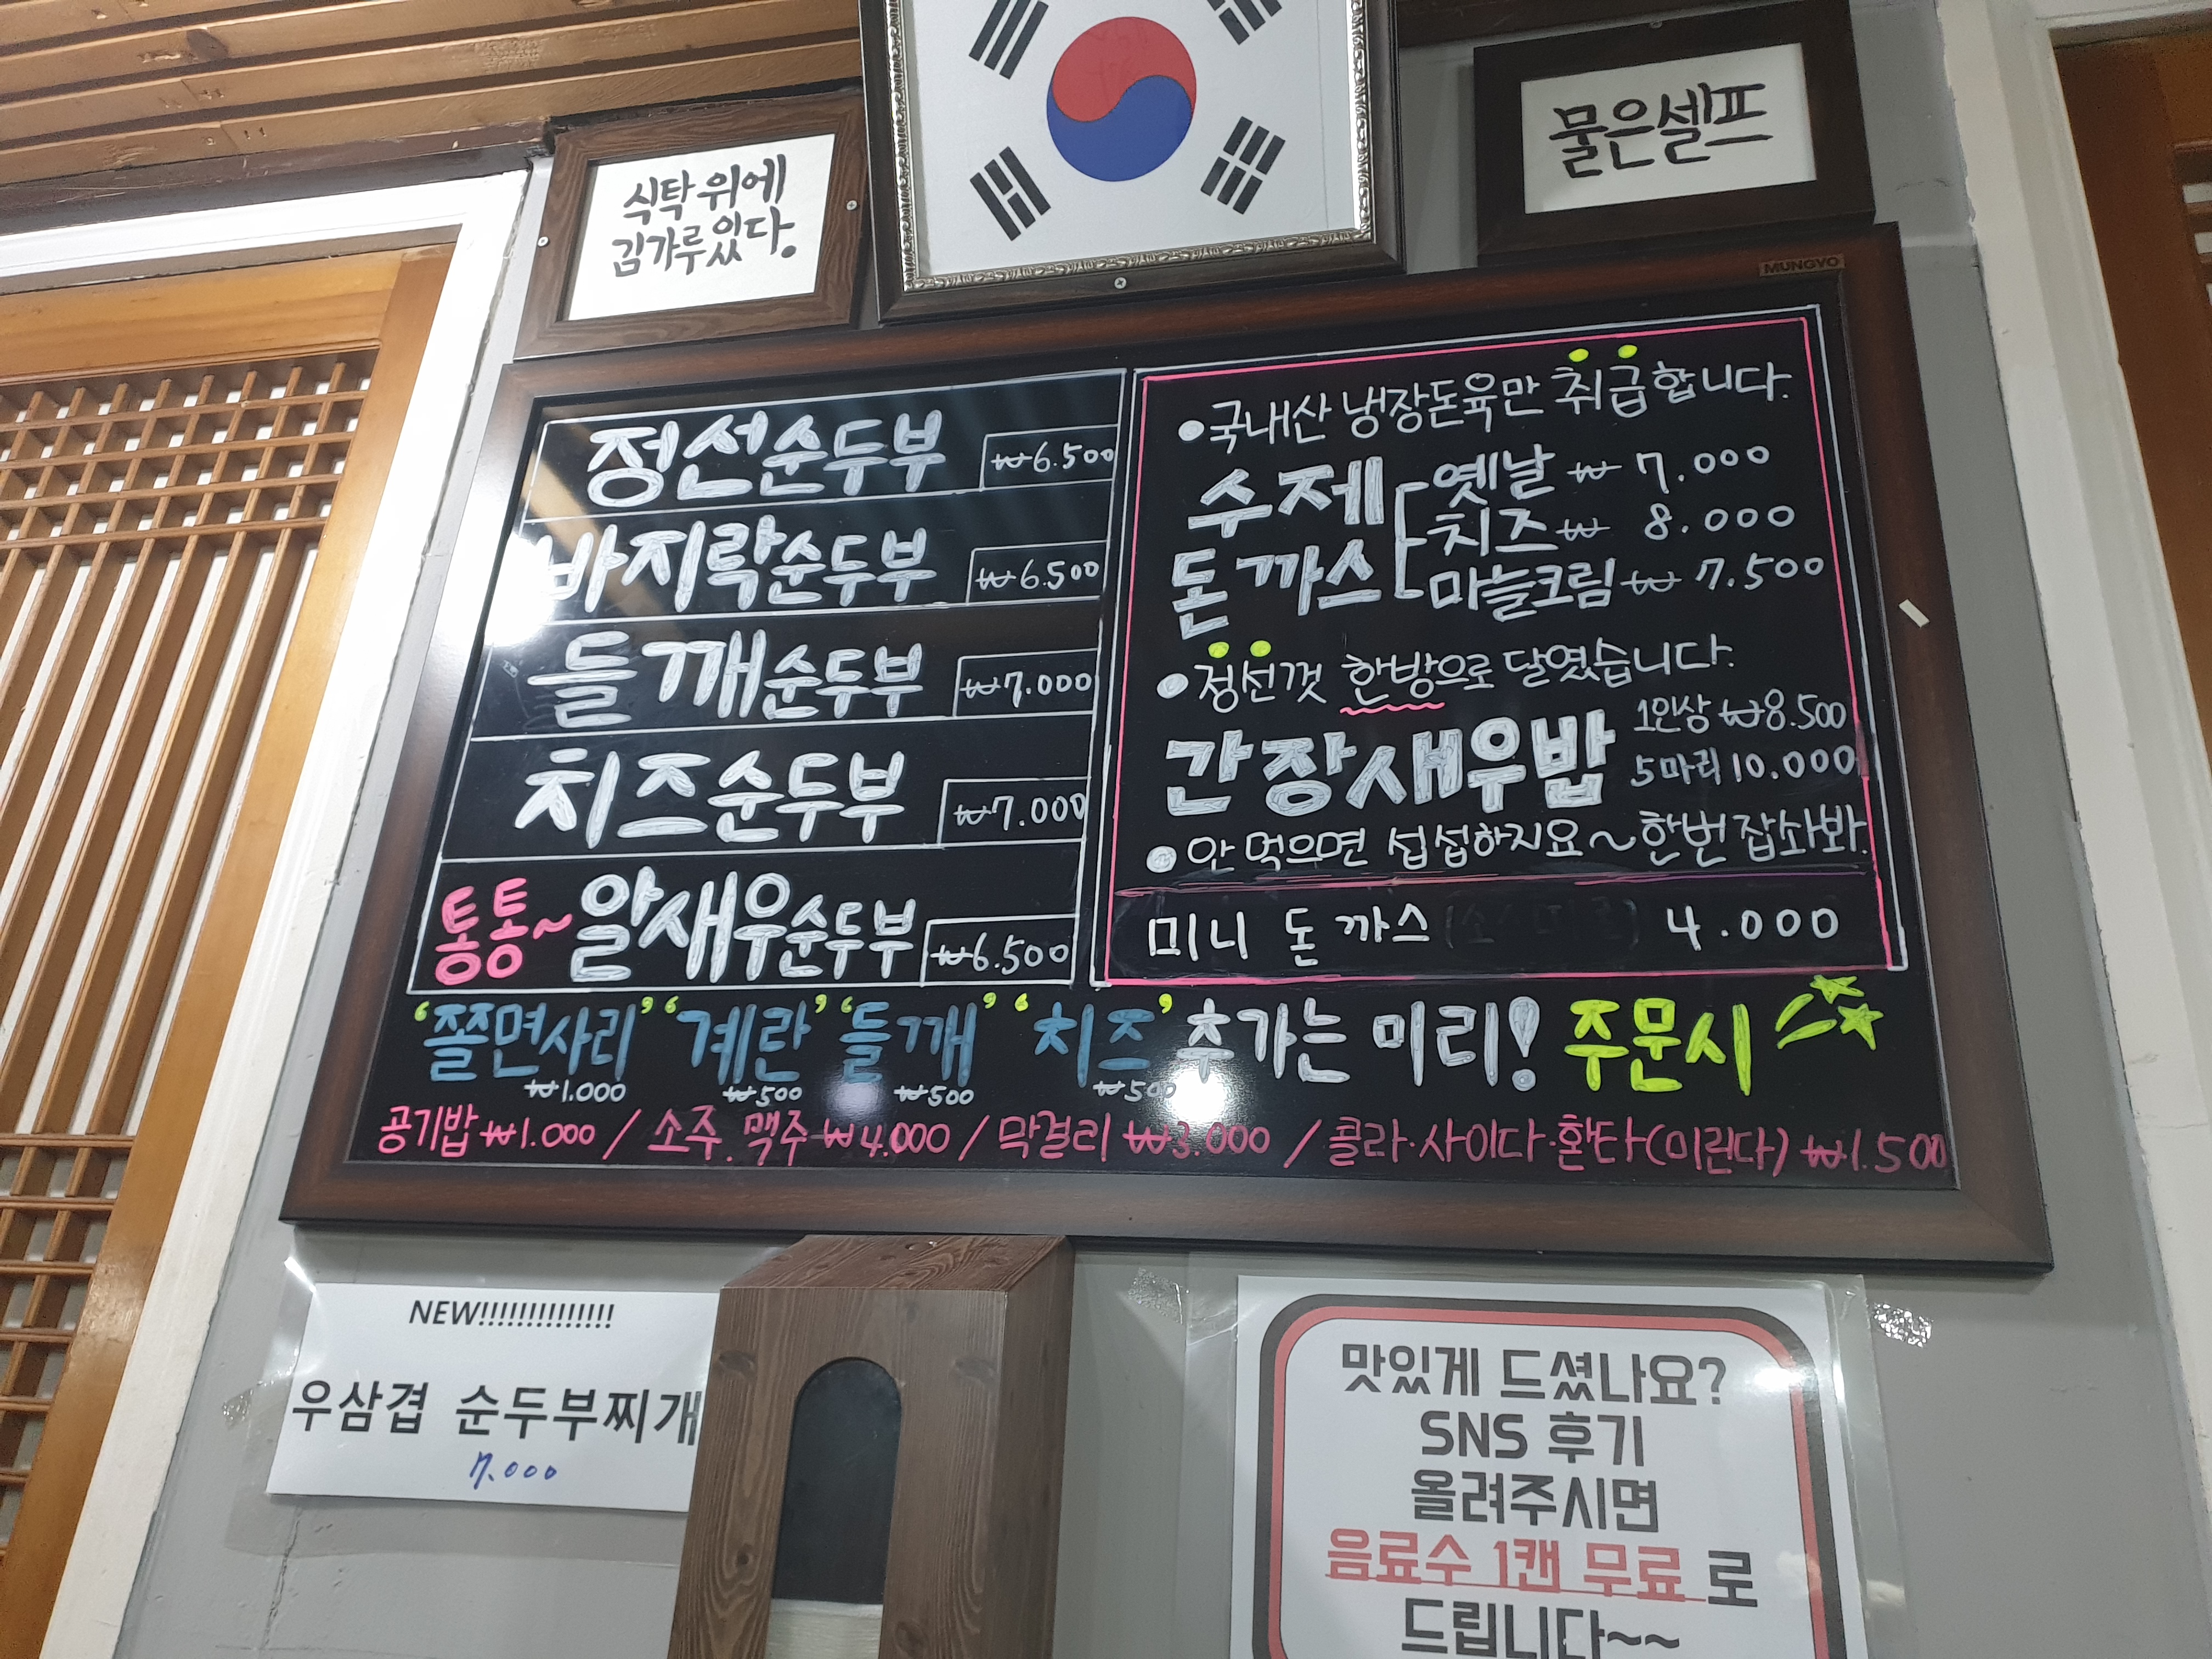 식탁위에
김가루있다.
물은셀프
MUNGYO
정선순두부 ₩6.500
바지락순두부 ₩6.500
들깨순두부 ₩7.000
치즈순두부 ₩7.000
통통~알새우순두부 ₩6.500
•국내산 냉장돈육만 취급합니다.
수제
돈까스
옛날 ₩ 7.000
치즈 ₩ 8.000
마늘크림 ₩ 7.500
•정선껏 한방으로 달였습니다.
간장새우밥
1인상 ₩8.500
5마리 10.000
•안 먹으면 섭섭하지요~한번잡솨봐.
미니 돈까스 4.000
'쫄면사리' '계란' '들깨' '치즈' 추가는 미리! 주문시
₩1.000 ₩500 ₩500 ₩500
공기밥 ₩1.000 / 소주. 맥주 ₩4.000 / 막걸리 ₩3.000 / 콜라·사이다·환타(미린다) ₩1.500
NEW!!!!!!!!!!!!!!
우삼겹 순두부찌개
7.000
맛있게 드셨나요?
SNS 후기
올려주시면
음료수 1캔 무료 로
드립니다~~